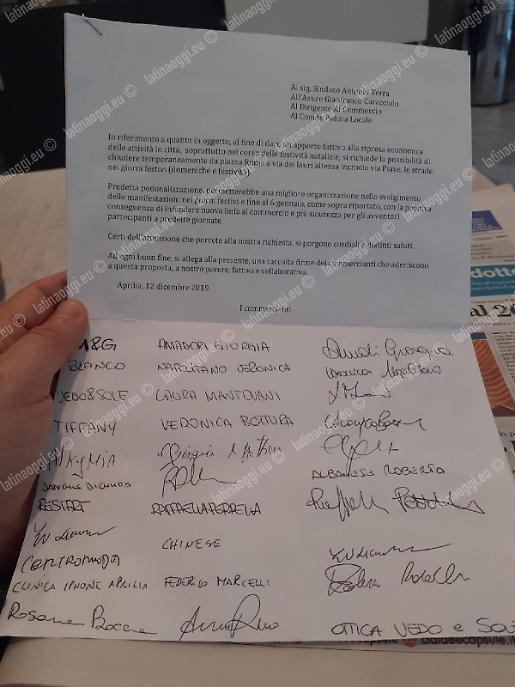 Al sig. Sindaco Antonio Terra
All'Ass.re Gianfranco Caracciolo
Al Dirigente Al Commercio
Al Com.te Polizia Locale
In riferimento a quanto in oggetto, al fine di dare un apporto fattivo alla ripresa economica
delle attività in città, soprattutto nel corso delle festività natalizie, si richiede la possibilità di
chiudere temporaneamente da piazza Roma a via dei Lauri altezza incrocio via Piave, le strade
nei giorni festivi (domeniche e festività).
Predetta pedonalizzazione, permetterebbe una migliore organizzazione nello svolgimento
delle manifestazioni nei giorni festivi e fino al 6 gennaio, come sopra riportato, con la positiva
conseguenza di infondere nuova linfa al commercio e più sicurezza per gli avventori
partecipanti a predette giornate.
Certi dell'attenzione che porrete alla nostra richiesta, si porgono cordiali e distinti saluti.
Ad ogni buon fine, si allega alla presente, una raccolta firme dei commercianti che aderiscono
a questa proposta, a nostro parere, fattiva e collaborativa.
Aprilia, 12 dicembre 2019
I commercianti
A&G AMADORI GIORGIA
BLANCO NAPOLITANO VERONICA
VEDO&SOLE LAURA MANTOVANI
TIFFANY VERONICA BOTTURA
ALBANESE ROBERTA
RESTART RAFFAELLA PERRELLA
CHINESE
CENTROMODA
CLINICA IPHONE APRILIA FEDERICO MARCELLI
Rosanna
OTTICA VEDO e SOLE
dotte
al 20
latinaoggi.eu ©